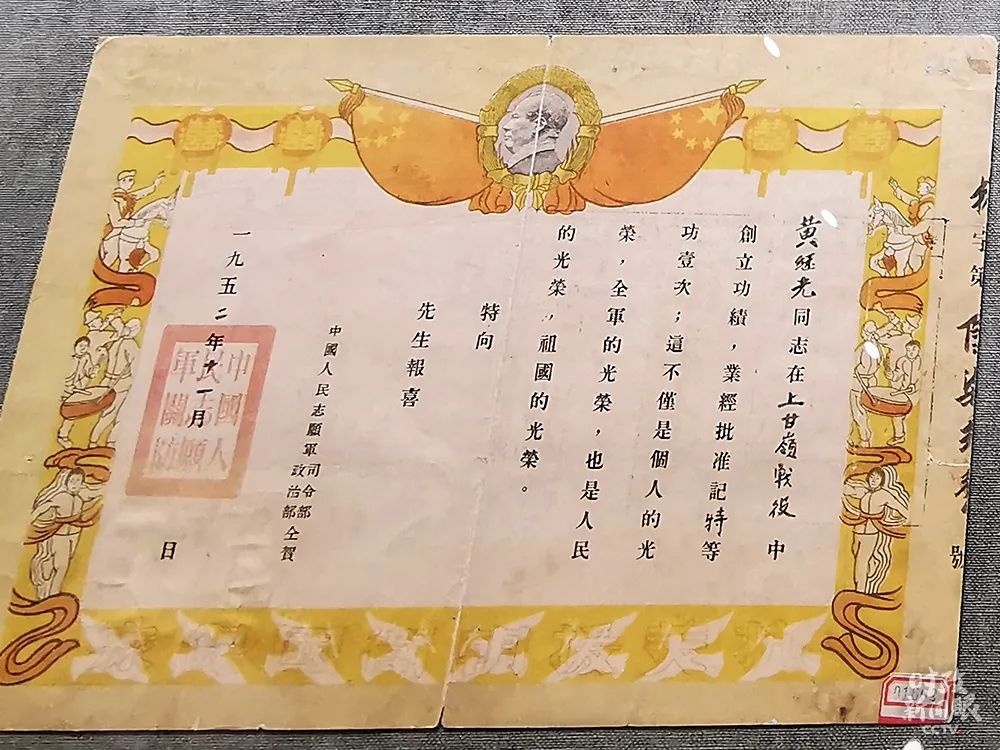 字第
號
黄继光同志在上甘嶺戰役中
創立功績，業經批准記特等
功壹次；這不僅是個人的光
榮，全軍的光榮，也是人民
的光榮，祖國的光榮。
特向
先生報喜
中國人民志願軍司令部
政治部仝賀
一九五二年十一月 日
中國人
民志願
軍關防
时政
新闻眼
CCTV